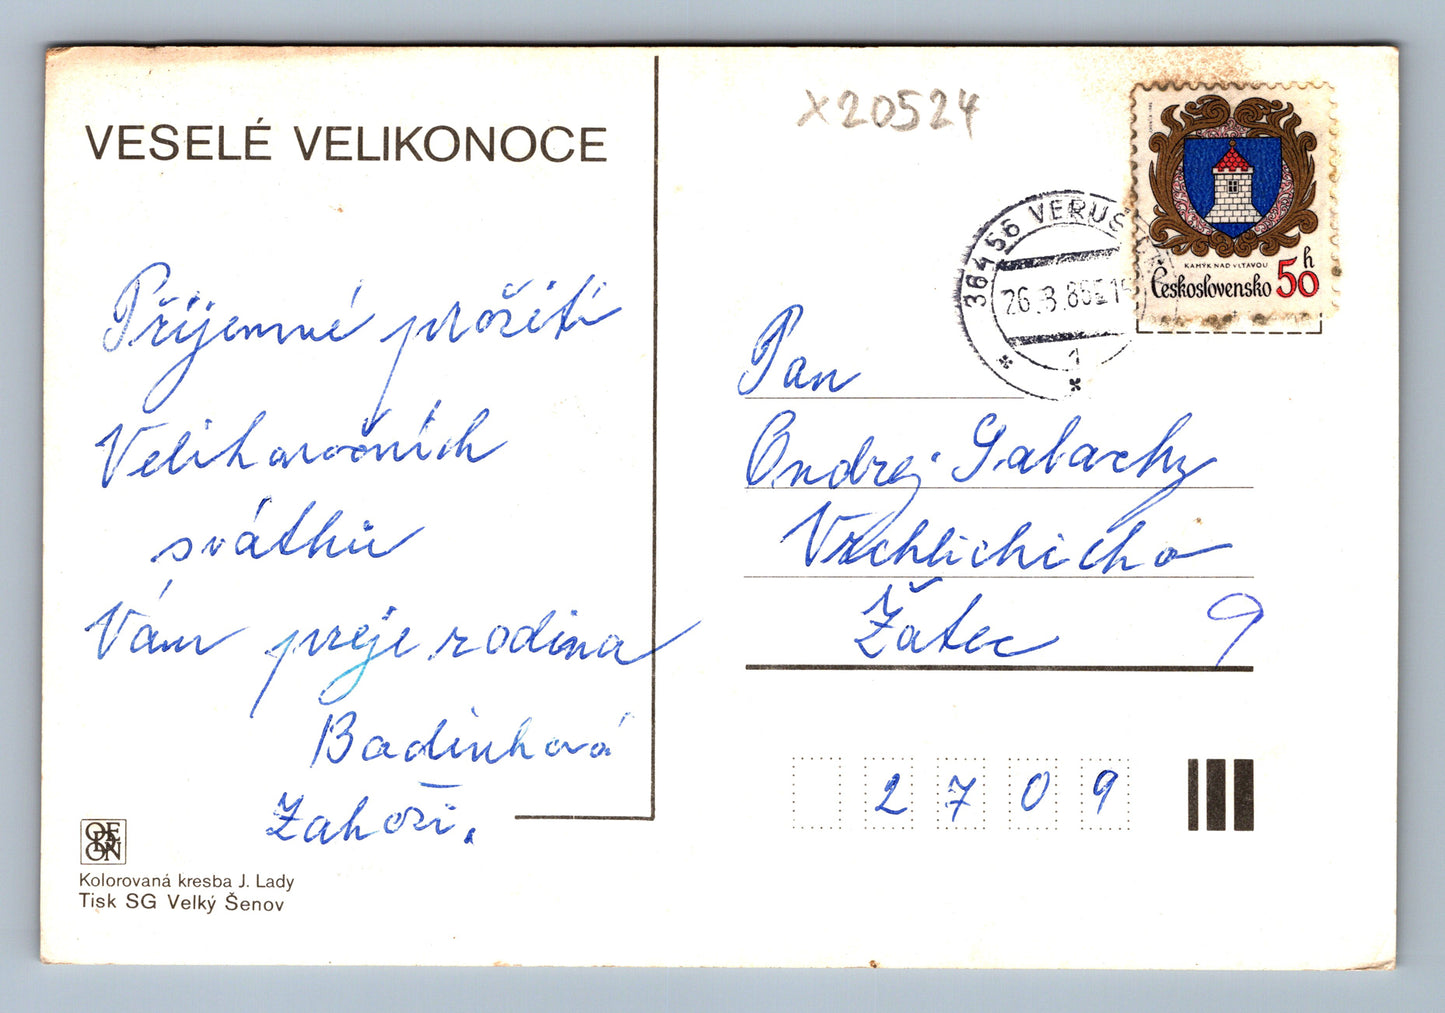 VESELÉ VELIKONOCE
x20524
36456 VERUŠ
26.-3.86
1
KAMÝK NAD VLTAVOU
Československo 50h
Příjemné prožití
Velikonočních
svátků
Vám preje rodina
Badinková
Zahoří.
Pan
Ondrej Galachy
Vrchlického
Žatec 9
2 7 0 9
ODEON
Kolorovaná kresba J. Lady
Tisk SG Velký Šenov